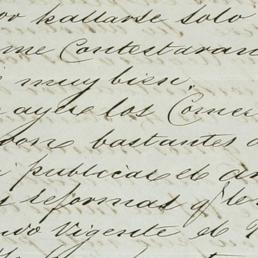 por hallarse solo
me contestaran
muy bien
a que los Comer
don bastantes
publicas el an
s reformas q̃ le
Vigente el